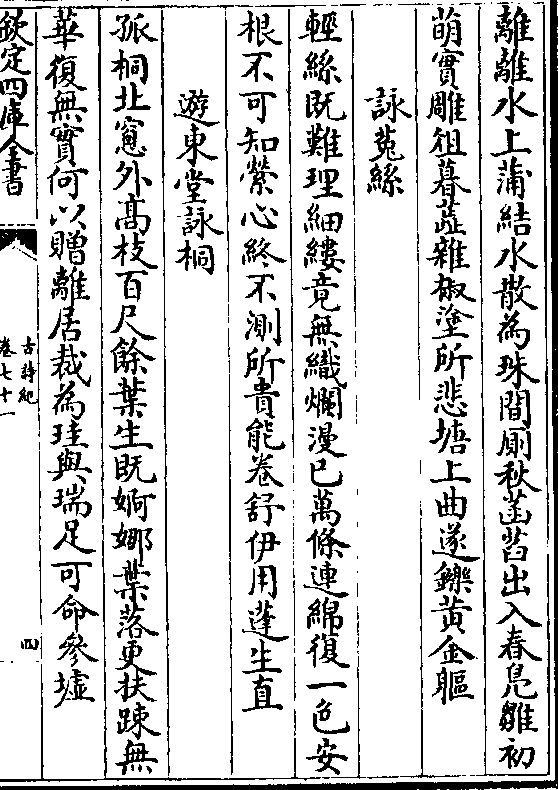 離離水上蒲結水散為珠間厠秋菡萏出入春鳧雛初
萌實雕俎暮蘂雜椒塗所悲塘上曲遂鑠黄金軀
詠菟絲
輕絲既難理細縷竟無織爛漫已萬條連綿復一色安
根不可知縈心終不測所貴能卷舒伊用蓬生直
遊東堂詠桐
孤桐北窻外髙枝百尺餘葉生既婀娜葉落更扶踈無
華復無實何以贈離居裁為珪與瑞足可命參墟
欽定四庫全書
古詩紀
卷七十一
四